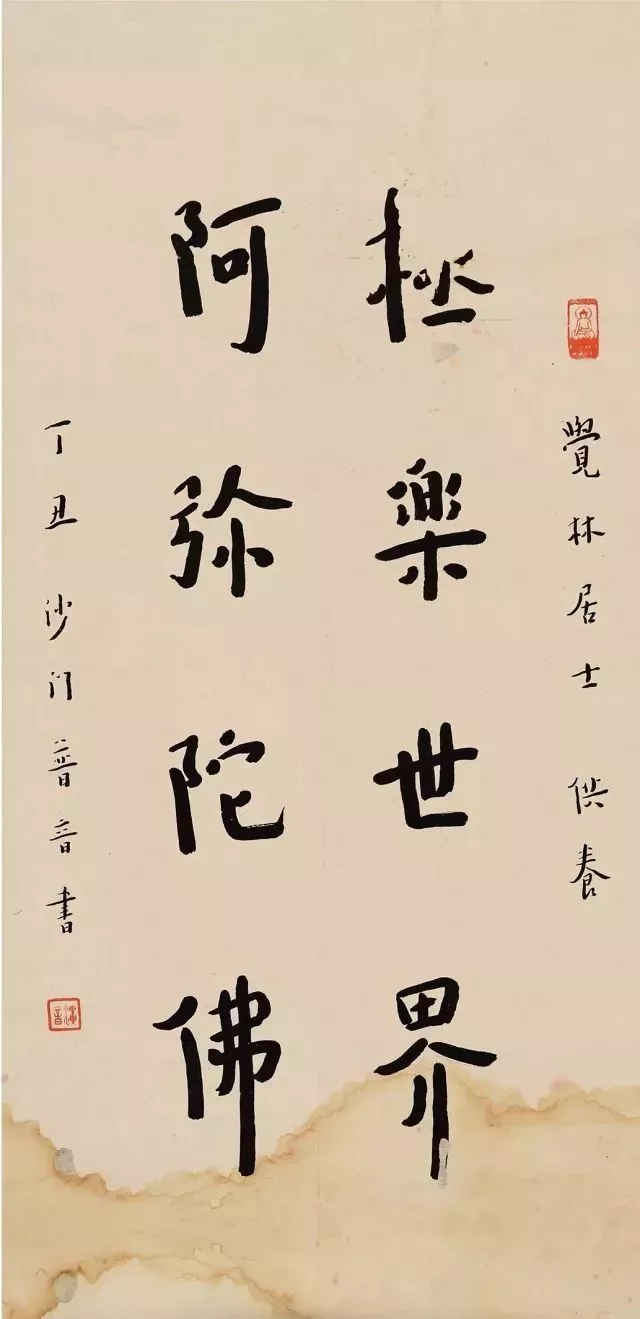 覺林居士供養
極樂世界
阿弥陀佛
丁丑沙门普音書
演音